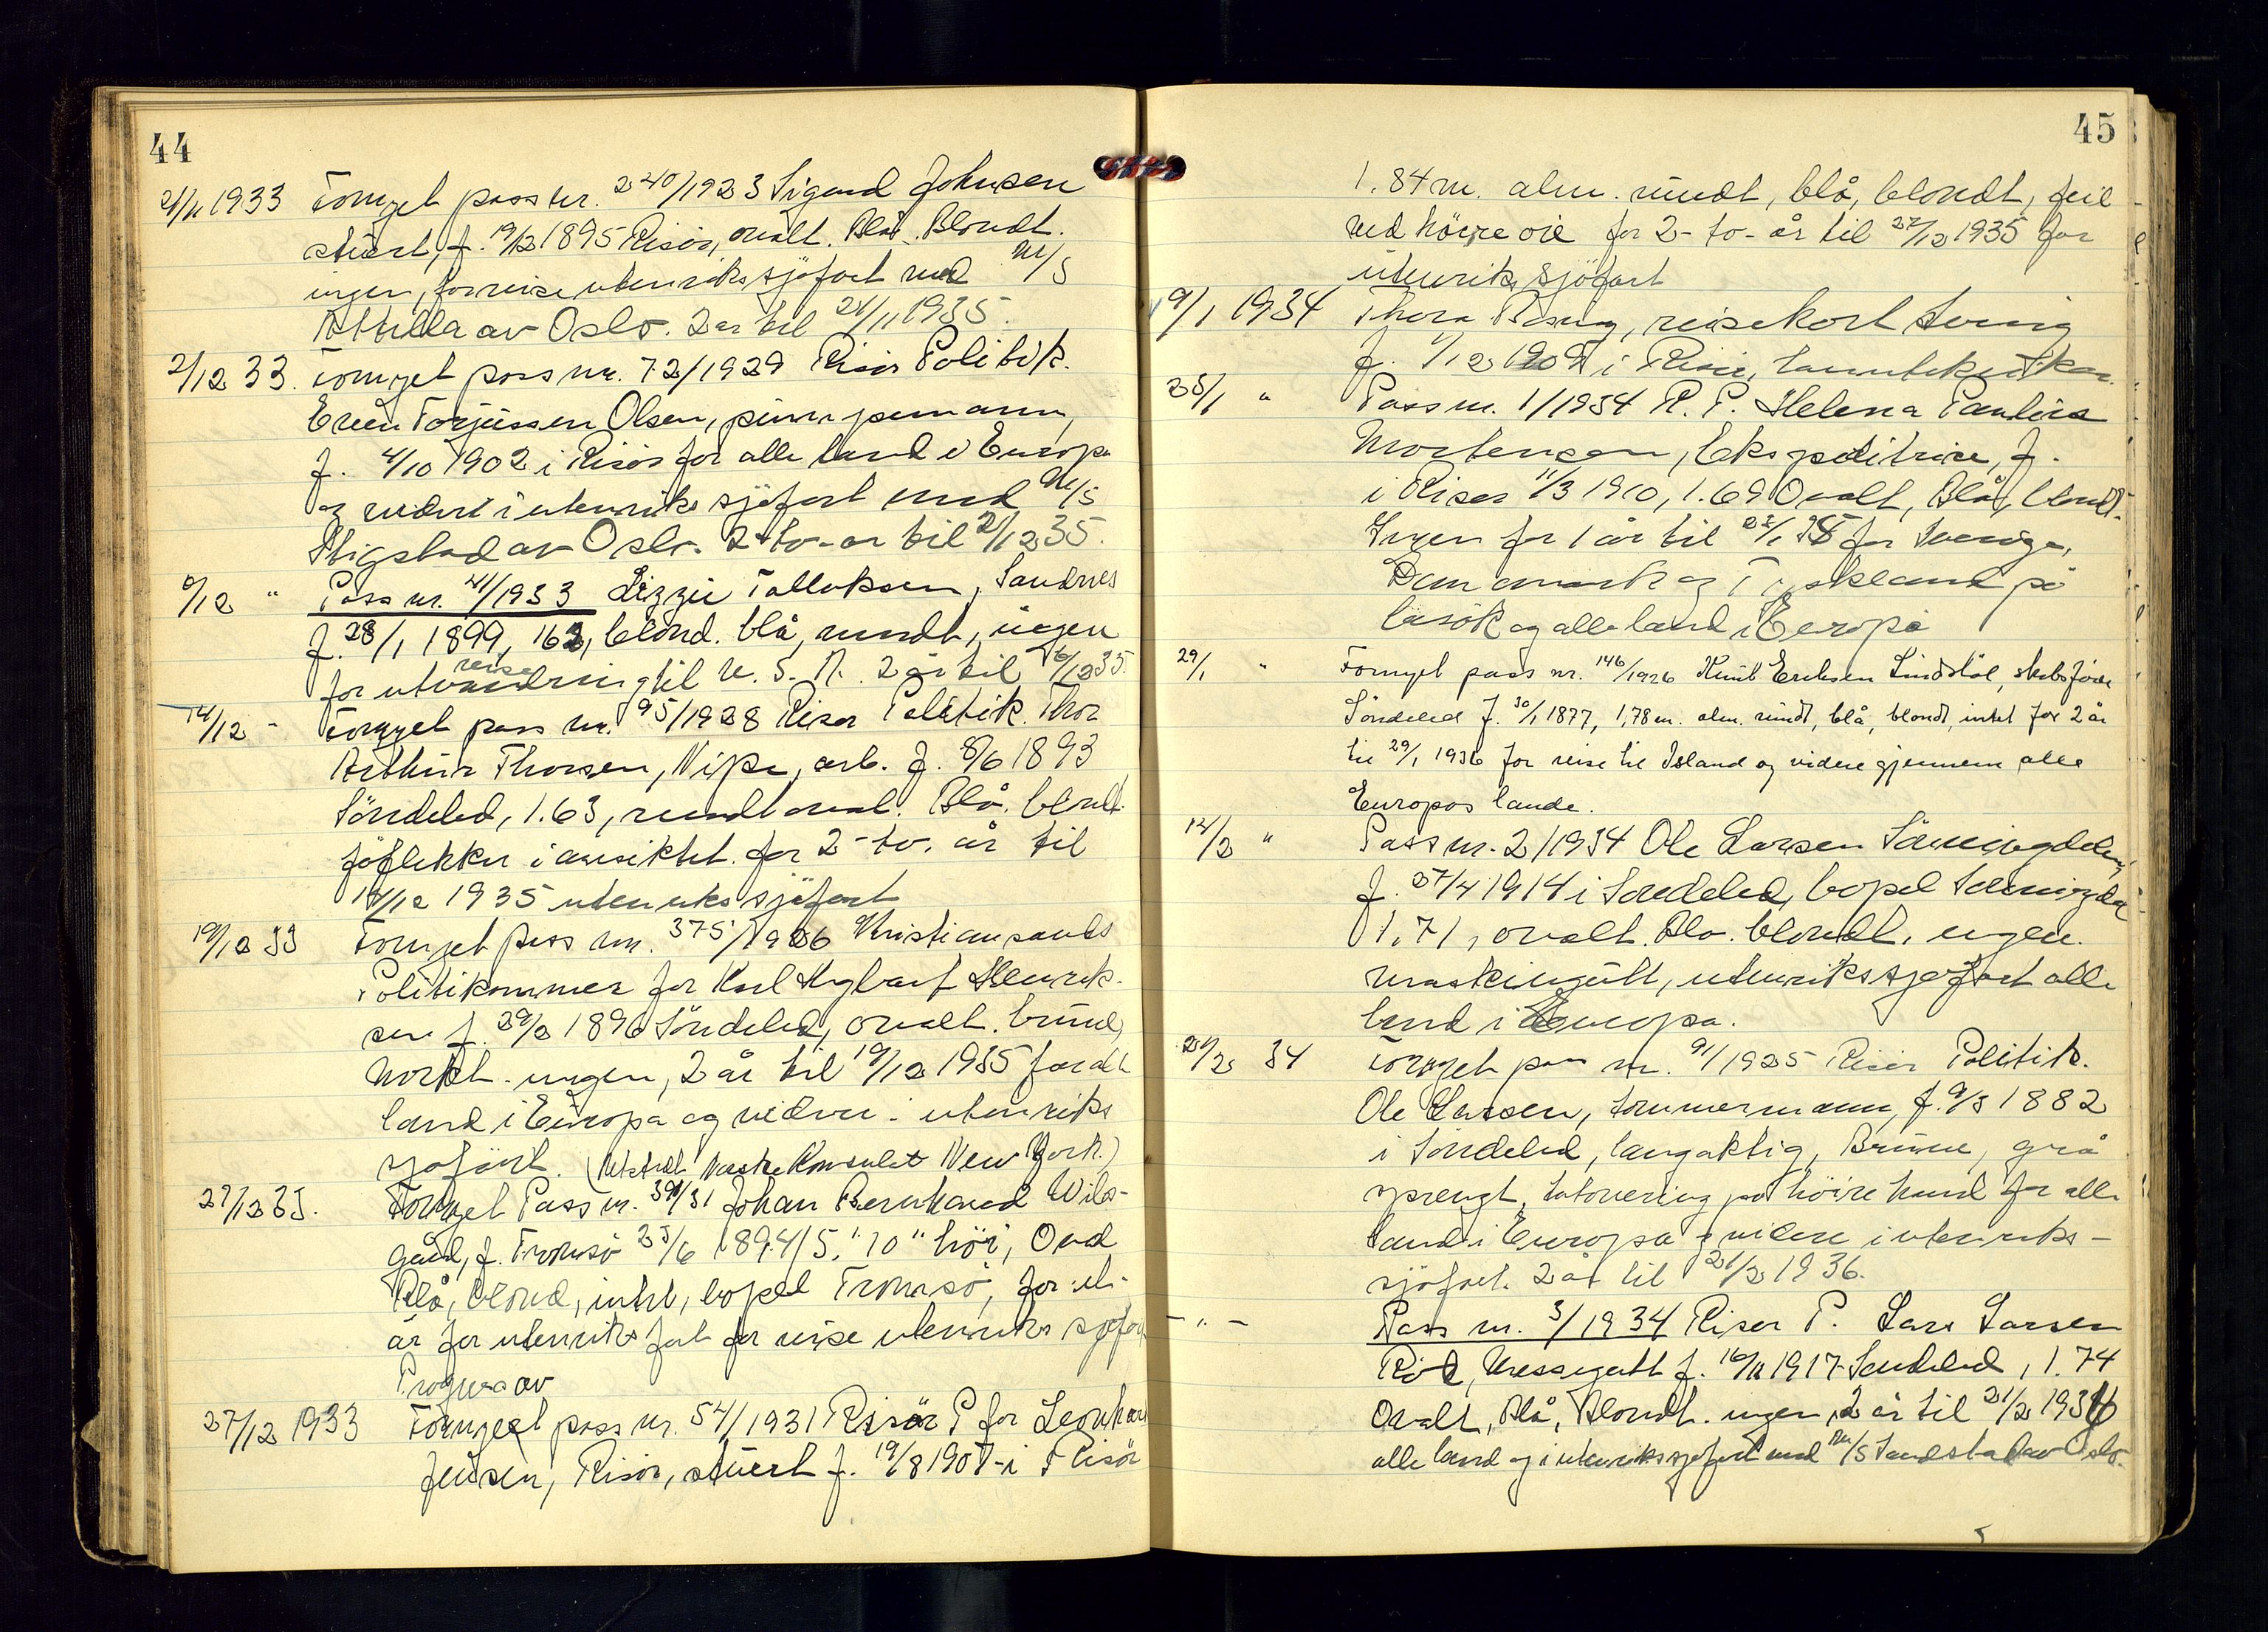 44
21/11 1933 Fornyet pass nr. 240/1923 Sigurd Johnsen
stuert, f. 19/2 1895 Risör, ovalt. Blå. Blondt.
ingen, for reise utenrikssjöfart med M/S
Attilla av Oslo. 2 år til 21/11 1935.
2/12 33. Fornyet pass nr. 72/1929 Risör Politik.
Even Torjussen Olsen, pumpemann,
f. 4/10 1902 i Risör for alle land i Europa
og videre i utenriks sjöfart med M/S
Høegstad av Oslo. 2-to-år til 2/12 35.
6/12 " Pass nr. 41/1933 Lizzie Tallaksen, Sandnes
f. 28/1 1899, 163, blond. blå, rundt, ingen
reise
for utvandring til U. S. A. 2 år til 6/12 35.
14/12 - Fornyet pass nr. 95/1928 Risør Politik. Thor
Arthur Thorsen, Vipe, arb. f. 8/6 1893
Söndeled, 1.63, rundtoval. Blå. blondt.
föflekker i ansiktet. for 2-to. år til
14/12 1935 utenriks sjöfart
19/12 33 Fornyet pass nr. 375/1926 Kristiansands
Politikammer for Karl Nybart Henrik-
sen f. 29/2 1896 Söndeled, ovalt. brune,
mörkt. ingen, 2 år til 19/12 1935 for alle
land i Europa og videre i utenriks
sjöfart. (Utstedt Norske Konsulat New York.)
27/12 33. Fornyet Pass nr. 391/31 Johan Bernhard Wils-
gård, f. Tromsö 25/6 1894/5, "10" höi, Oval
Blå, blond, intet, bopel Tromsö, for et-
år for utenriks fart for reise utenriks sjöfart
av
27/12 1933 Fornyet pass nr. 54/1931 Risör P for Leonhard
Jensen, Risör, stuert f. 19/8 1907 i Risör
45
1.84 m. alm. rundt, blå, blondt, feil
ved höire öie for 2-to-år til 27/12 1935 for
utenriks sjöfart
19/1 1934 Thora Besing, reisekort Sverig
f. 1/12 1909 i Risör,
25/1 " Pass nr. 1/1934 R. P. Helena Pauline
Mortensen, Ekspeditrise, f.
i Risør 11/3 1910, 1.69 Ovalt, Blå, blondt.
Ingen for 1 år til 25/1 35 for Sverige,
Danmark og Tyskland på
besök og alle land i Europa
29/1 " Fornyet pass nr. 146/1926 Knut Eriksen Lindstöl, skibsförer
Söndeled f. 30/1 1877, 1,78 m. alm. rundt, blå, blondt, intet for 2 år
til 29/1 1936 for reise til Island og videre gjennem alle
Europas lande.
12/2 " Pass nr. 2/1934 Ole Larsen
f. 27/4 1914 i Söndeled, bopel
1.71, ovalt. Blå. blondt. ingen.
maskingutt, utenrikssjöfart alle
land i Europa.
21/2 34 Fornyet pass nr. 91/1925 Risör Politik.
Ole Larsen, tömmermann, f. 9/3 1882
i Söndeled, langaktig, Brune, grå
sprengt, tatovering på höire hånd for alle
land i Europa og videre i utenriks-
sjöfart. 2 år til 21/2 1936.
- " - Pass nr. 3/1934 Risør P. Lars Larsen
Röd, Messegutt f. 16/11 1917 Söndeled, 1.74
Ovalt, Blå, Blondt. ingen, 2 år til 21/2 1936
alle land og i utenrikssjöfart med M/S Sandstad av Oslo.